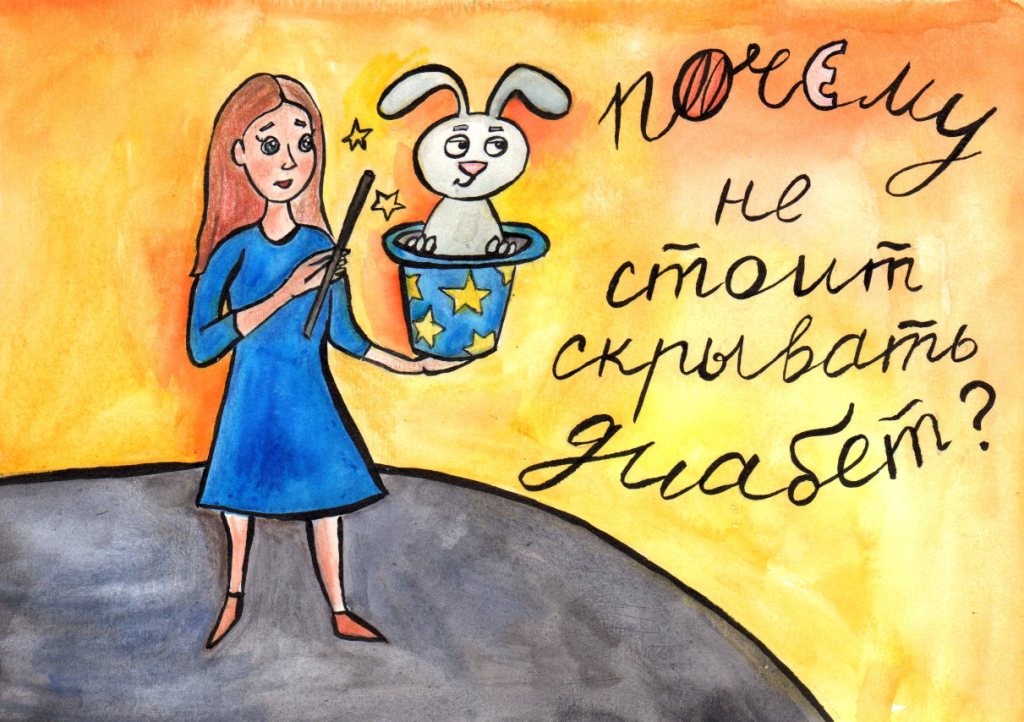 Почему
не
стоит
скрывать
диабет?